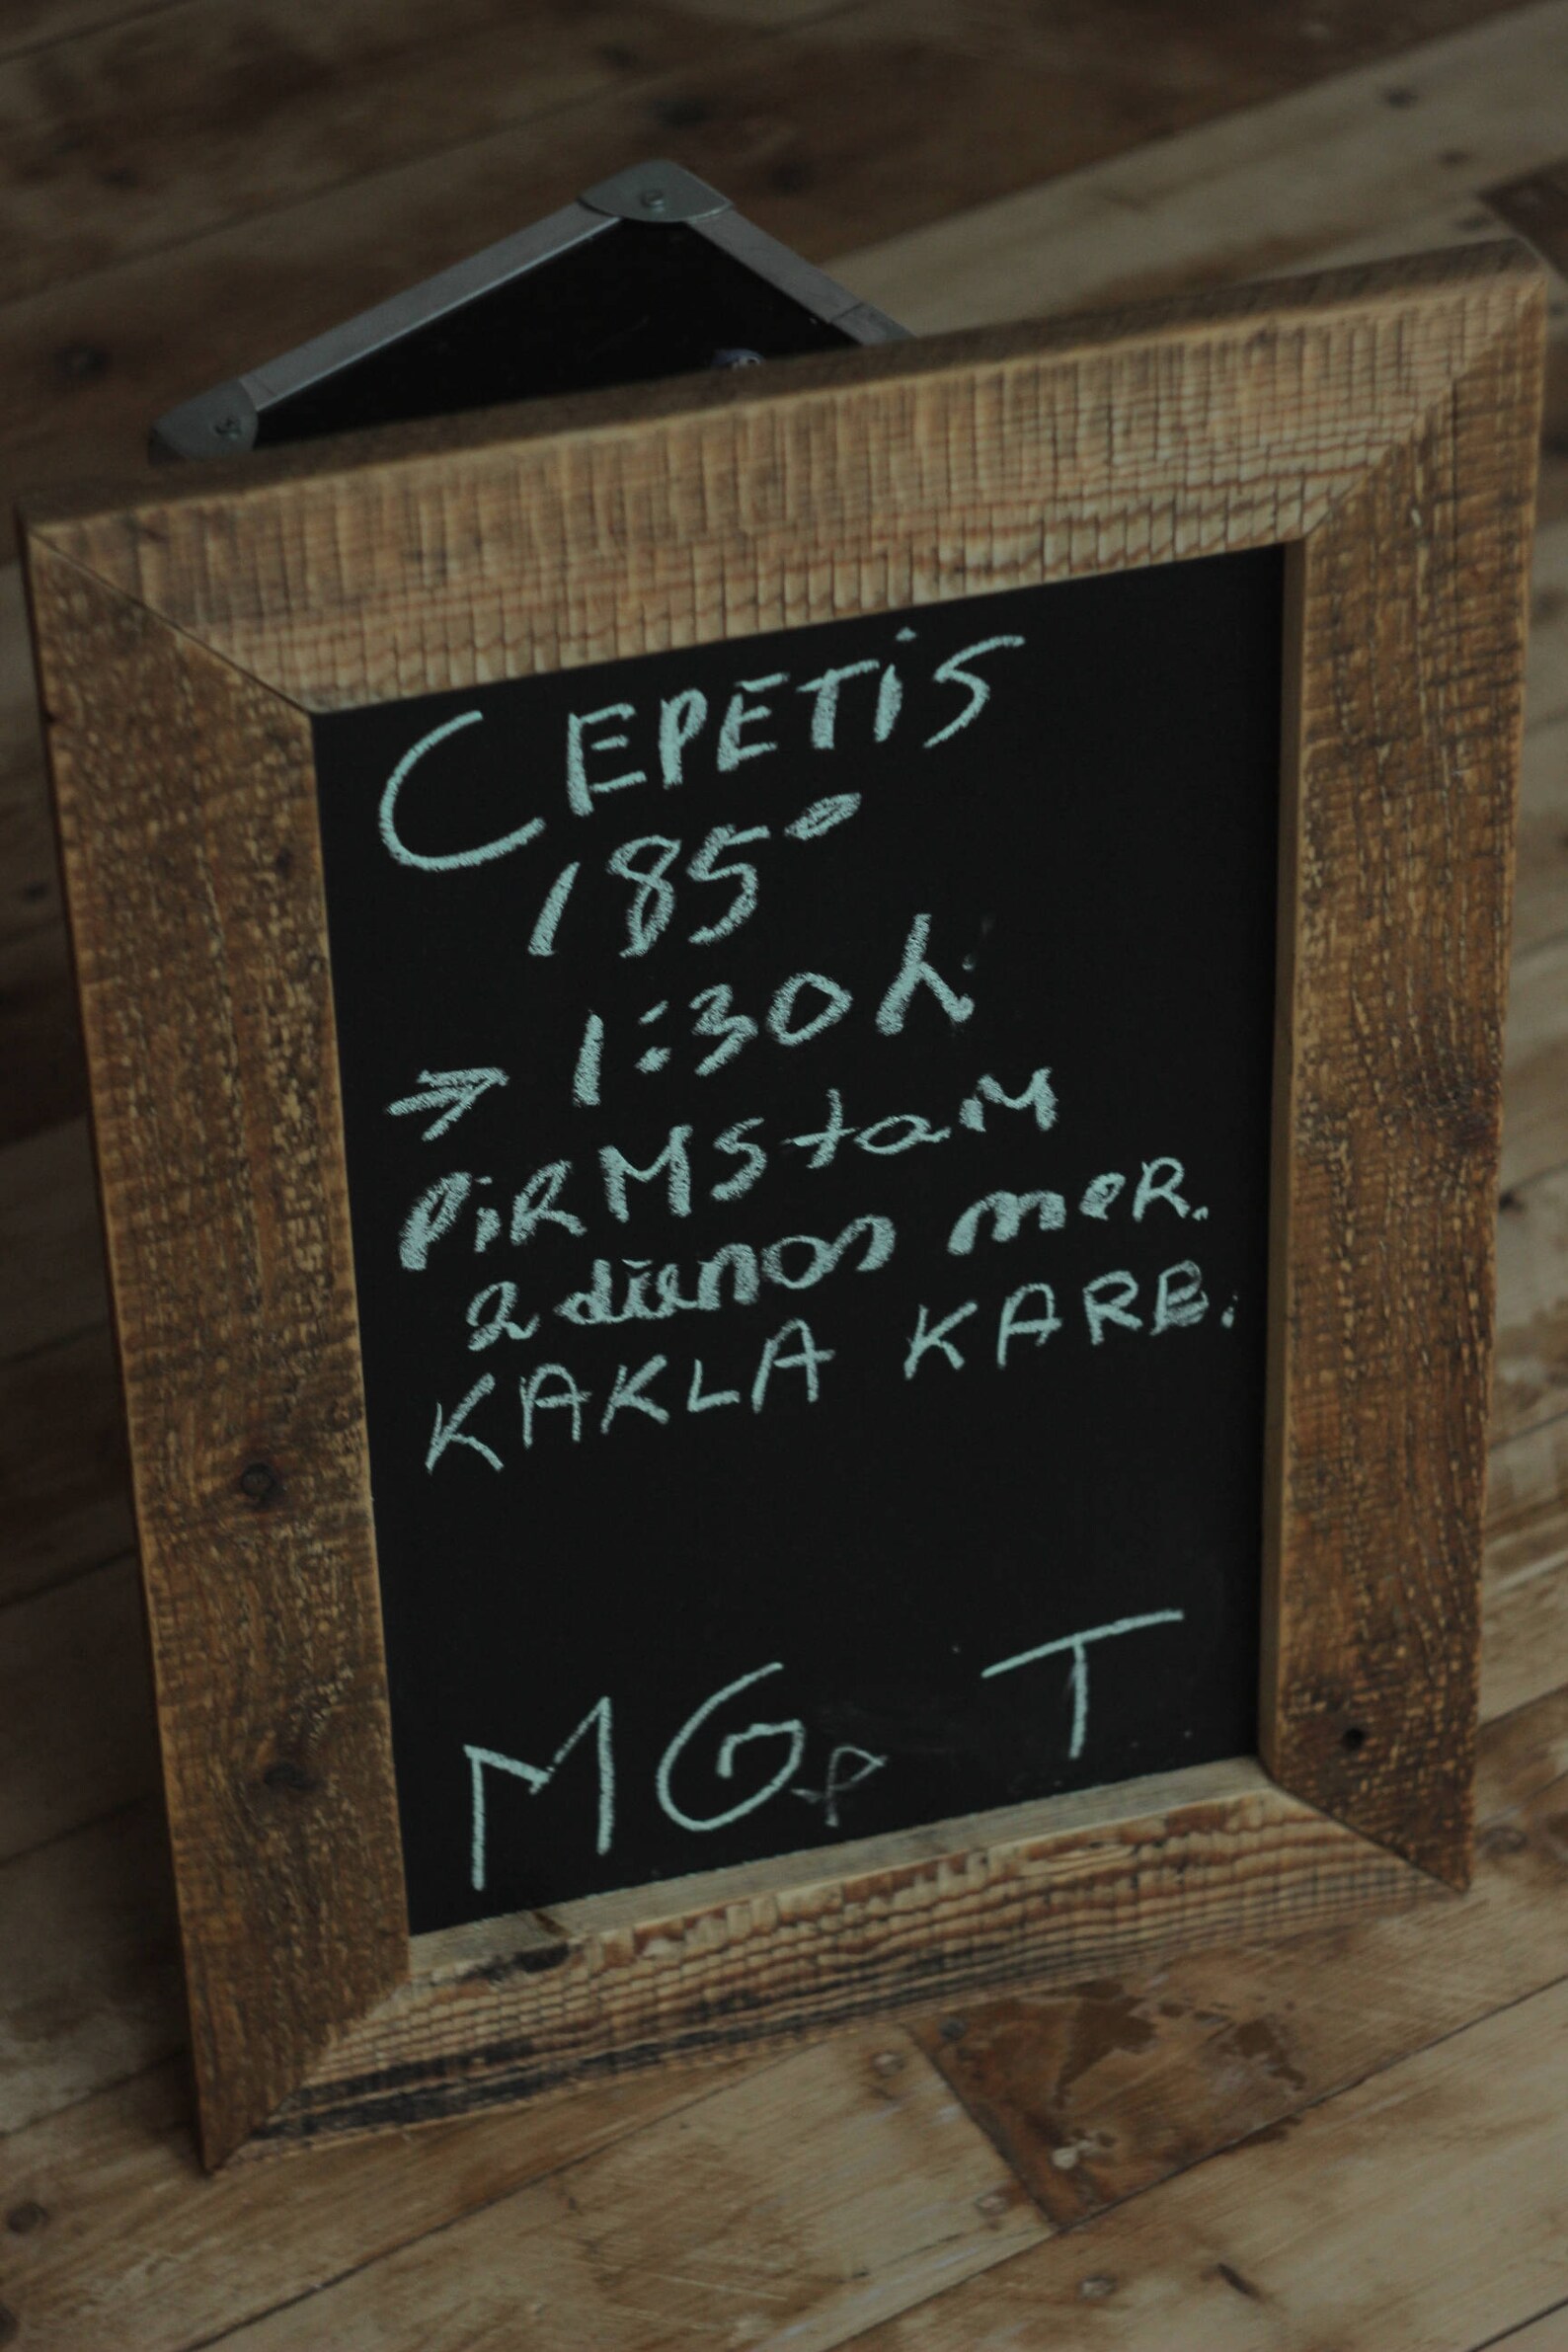 CEPETiS
185°
→ 1:30 h
PiRMStaM
2 dienas meR.
KAKLA KARB.
MG T